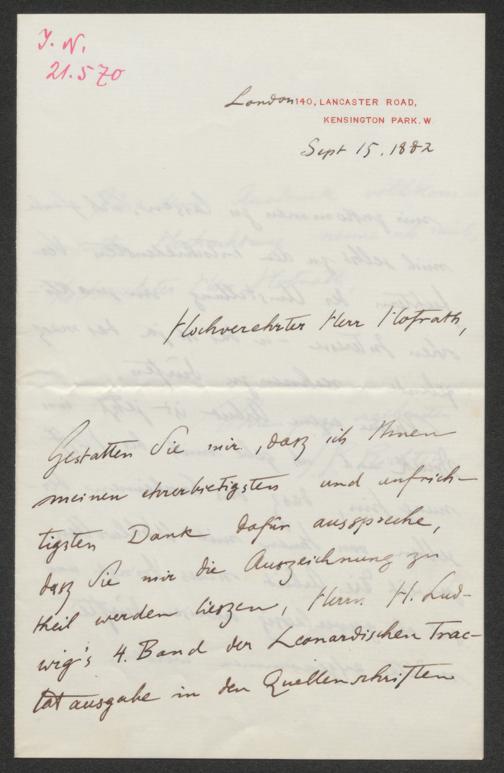 J. N.
21.570
London 140, LANCASTER ROAD,
KENSINGTON PARK. W.
Sept 15. 1882
Hochverehrter Herr Hofrath,
Gestatten Sie mir, dasz ich Ihnen
meinen ehrerbietigsten und aufrich-
tigsten Dank dafür ausspreche,
dasz Sie mir die Auszeichnung zu
theil werden lieszen, Herrn H. Lud-
wig's 4. Band der Leonardischen Trac-
tatausgabe in den Quellenschriften